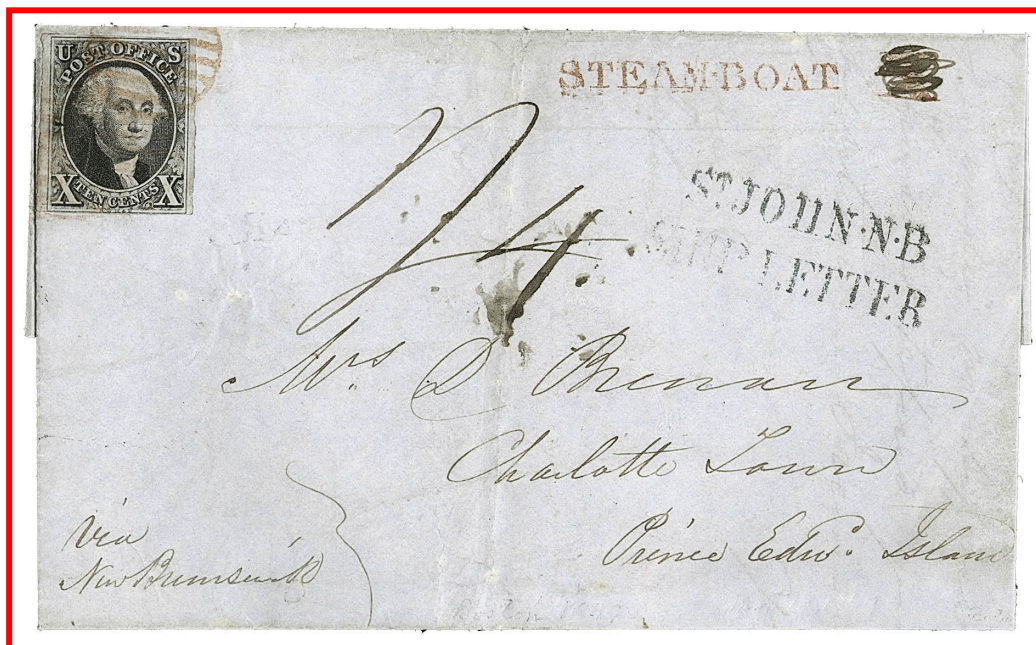 U S
POST OFFICE
X TEN CENTS X
STEAM·BOAT
ST JOHN·N·B
SHIP LETTER
4
Mrs D Brenan
Charlotte Town
Prince Edwd. Island
Via
New Brunswick